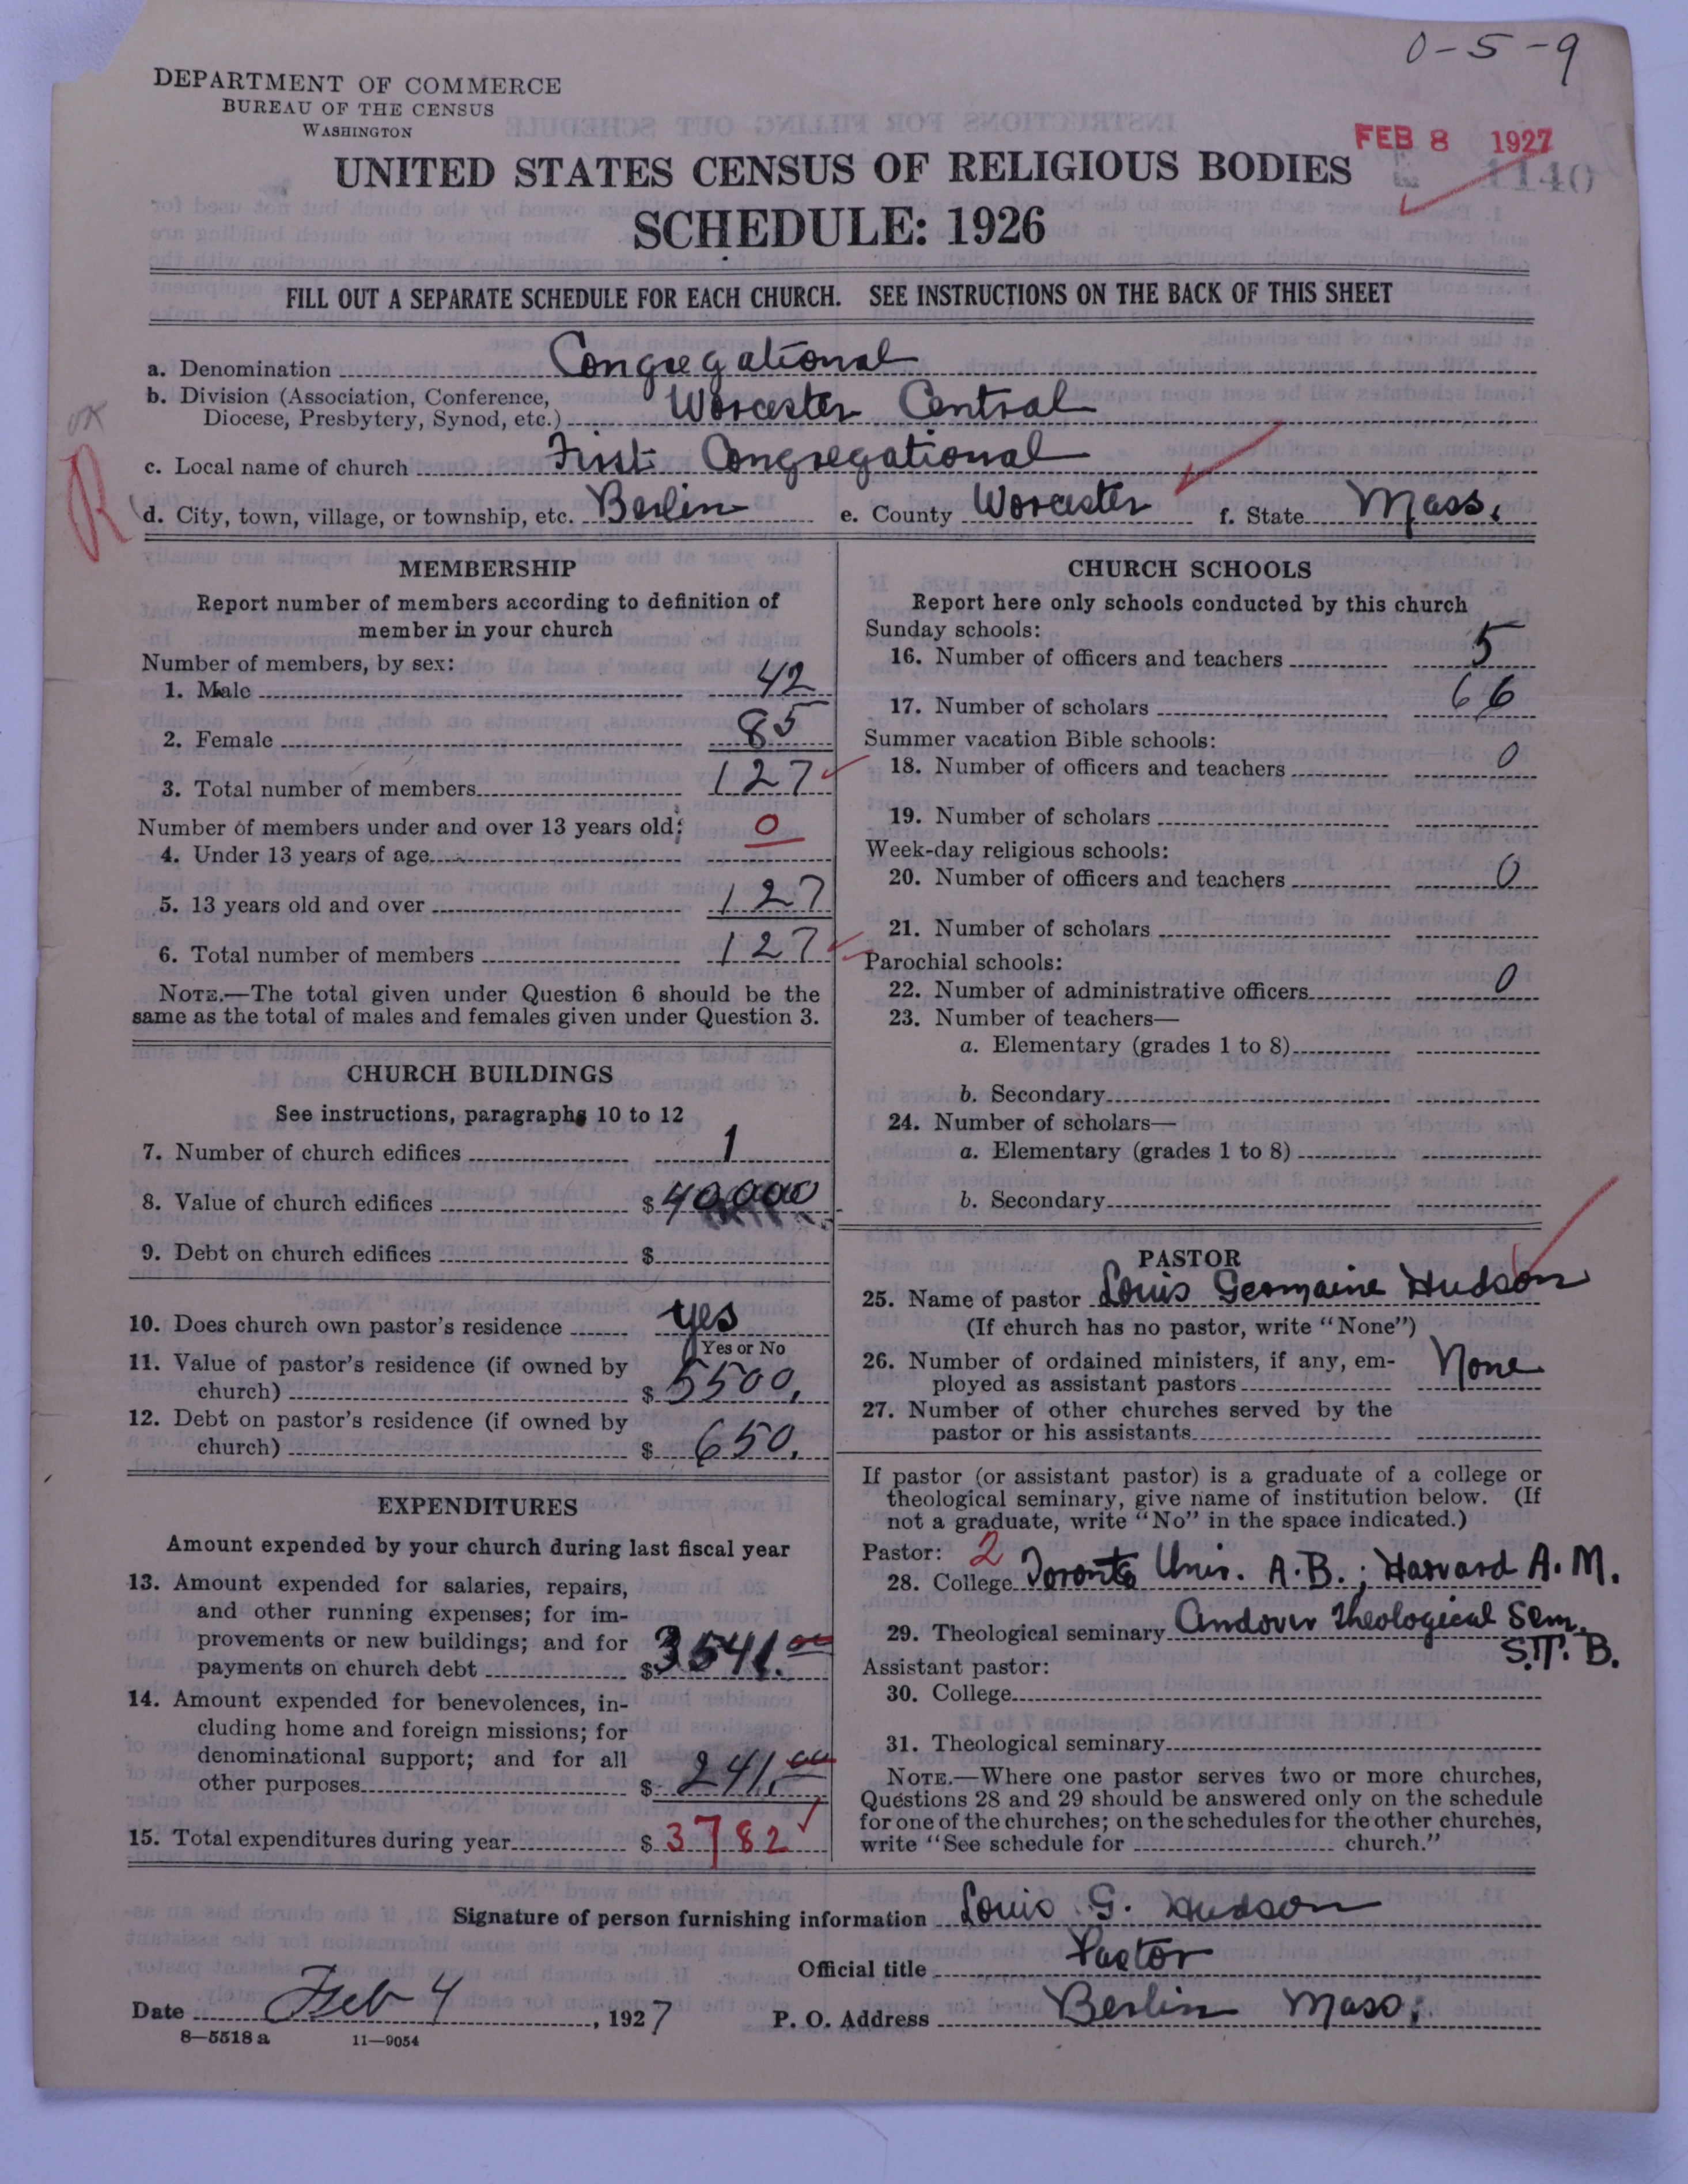 0-5-9
DEPARTMENT OF COMMERCE
BUREAU OF THE CENSUS
WASHINGTON
FEB 8 1927
1140
UNITED STATES CENSUS OF RELIGIOUS BODIES
SCHEDULE: 1926
FILL OUT A SEPARATE SCHEDULE FOR EACH CHURCH. SEE INSTRUCTIONS ON THE BACK OF THIS SHEET
a. Denomination Congregational
b. Division (Association, Conference,
Diocese, Presbytery, Synod, etc.) Worcester Central
OK
R
c. Local name of church First Congregational
d. City, town, village, or township, etc. Berlin e. County Worcester f. State Mass.
MEMBERSHIP
Report number of members according to definition of
member in your church
Number of members, by sex:
1. Male 42
2. Female 85
3. Total number of members 127
Number of members under and over 13 years old:
4. Under 13 years of age 0
5. 13 years old and over 127
6. Total number of members 127
NOTE.—The total given under Question 6 should be the
same as the total of males and females given under Question 3.
CHURCH BUILDINGS
See instructions, paragraphs 10 to 12
7. Number of church edifices 1
8. Value of church edifices $ 40,000
9. Debt on church edifices $
10. Does church own pastor's residence yes
Yes or No
11. Value of pastor's residence (if owned by
church) $ 5500.
12. Debt on pastor's residence (if owned by
church) $ 650.
EXPENDITURES
Amount expended by your church during last fiscal year
13. Amount expended for salaries, repairs,
and other running expenses; for im-
provements or new buildings; and for
payments on church debt $ 3541.00
14. Amount expended for benevolences, in-
cluding home and foreign missions; for
denominational support; and for all
other purposes $ 241.00
15. Total expenditures during year $ 3782
CHURCH SCHOOLS
Report here only schools conducted by this church
Sunday schools:
16. Number of officers and teachers 5
17. Number of scholars 66
Summer vacation Bible schools:
18. Number of officers and teachers 0
19. Number of scholars
Week-day religious schools:
20. Number of officers and teachers 0
21. Number of scholars
Parochial schools:
22. Number of administrative officers 0
23. Number of teachers—
a. Elementary (grades 1 to 8)
b. Secondary
24. Number of scholars—
a. Elementary (grades 1 to 8)
b. Secondary
PASTOR
25. Name of pastor Louis Germaine Hudson
(If church has no pastor, write "None")
26. Number of ordained ministers, if any, em-
ployed as assistant pastors None
27. Number of other churches served by the
pastor or his assistants
If pastor (or assistant pastor) is a graduate of a college or
theological seminary, give name of institution below. (If
not a graduate, write "No" in the space indicated.)
Pastor: 2
28. College Toronto Univ. A.B.; Harvard A.M.
29. Theological seminary Andover Theological Sem.
S.T.B.
Assistant pastor:
30. College
31. Theological seminary
NOTE.—Where one pastor serves two or more churches,
Questions 28 and 29 should be answered only on the schedule
for one of the churches; on the schedules for the other churches,
write "See schedule for church."
Signature of person furnishing information Louis G. Hudson
Official title Pastor
Date Feb 4, 1927 P. O. Address Berlin Mass.
8—5518 a 11—9054